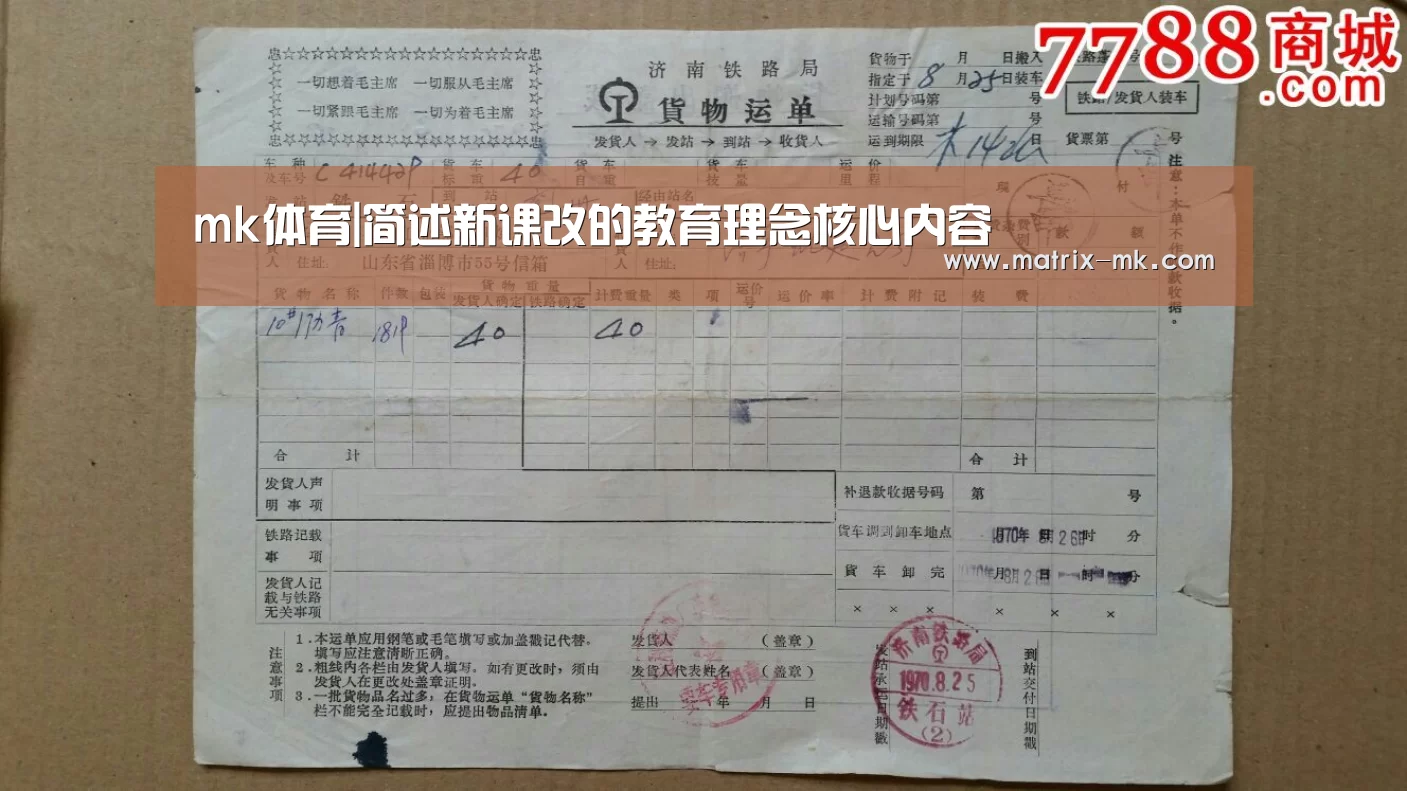 7788商城
.com
忠☆☆☆☆☆☆☆☆☆☆☆☆☆☆☆☆☆☆忠
一切想着毛主席 一切服从毛主席
一切紧跟毛主席 一切为着毛主席
忠☆☆☆☆☆☆☆☆☆☆☆☆☆☆☆☆☆☆忠
济南铁路局
貨物运单
发貨人→发站→到站→收貨人
貨物于 月 日搬入
指定于8月25日装车
计划号码第 号
运输号码第 号
运到期限 日
铁路/发貨人装车
貨票第 号
注意：本单不作 款收据。
车种及车号 C 414429 貨车标重 40 貨车自重 貨车技量 运价里程
mk体育|简述新课改的教育理念核心内容
www.matrix-mk.com
人 住址: 山东省淄博市55号信箱
人 住址:
貨物名称 件数 包装 貨物重量 发貨人确定 铁路确定 计费重量 类 项 运价号 运价率 计费附记 装费
40 40
合计 合计
发貨人声明事项
补退款收据号码 第 号
铁路记载事项
貨车调到卸车地点 1970年8月26日 时 分
貨车卸完 月 日 时 分
发貨人记载与铁路无关事项
× × × × × ×
注意事项
1.本运单应用鋼笔或毛笔填写或加盖戳记代替。
填写应注意清晰正确。
2.粗线内各栏由发貨人填写。如有更改时，须由
发貨人在更改处盖章证明。
3.一批貨物品名过多，在貨物运单“貨物名称”
栏不能完全记载时，应提出物品清单。
发貨人 (盖章)
发貨人代表姓名 (盖章)
提出 年 月 日
济南铁路局
1970.8.25
铁石站
(2)
到站交付日期戳